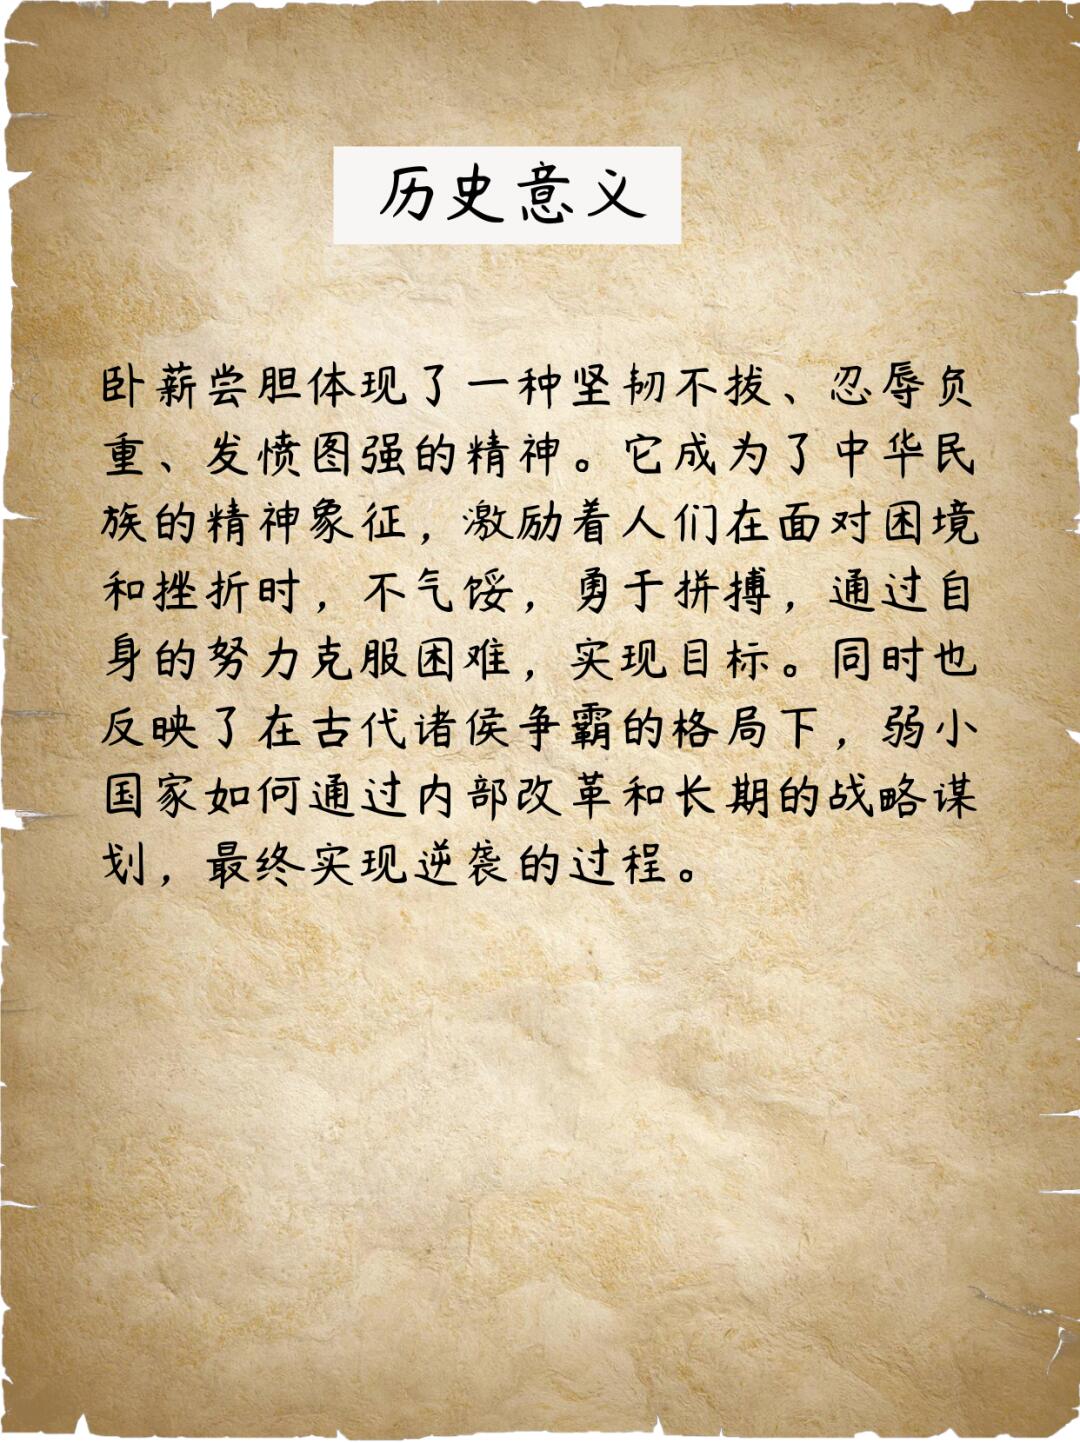 历史意义
卧薪尝胆体现了一种坚韧不拔、忍辱负
重、发愤图强的精神。它成为了中华民
族的精神象征，激励着人们在面对困境
和挫折时，不气馁，勇于拼搏，通过自
身的努力克服困难，实现目标。同时也
反映了在古代诸侯争霸的格局下，弱小
国家如何通过内部改革和长期的战略谋
划，最终实现逆袭的过程。